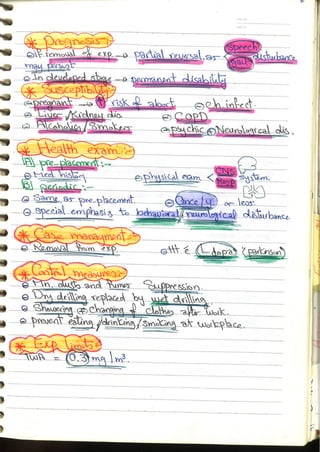 * Prognosis
If removal of exp. → partial reversal as speech disturbance
may persist
In developed stage → permanent disability
* Susceptibility
pregnant → ↑ risk of abort
ch. infect.
Liver / Kidney dis.
COPD
Alcoholics / Smokers
psychic Neurological dis.
* Health exam
A pre-placement:-
Med history
physical exam < CNS system.
B periodic:-
Same as pre-placement
Once/y. or less
special emphasis to behavioral / neurological disturbance
* Case managment
Removal from exp.
ttt L dopa parkinson
* Control measures
Fin, dusts and fumes Suppression.
Dry drilling replaced by wet drilling
Showering changing clothes after work.
prevent eating/drinking/smoking at workplace.
* Exp limits
TWA = 0.3 mg/m³.